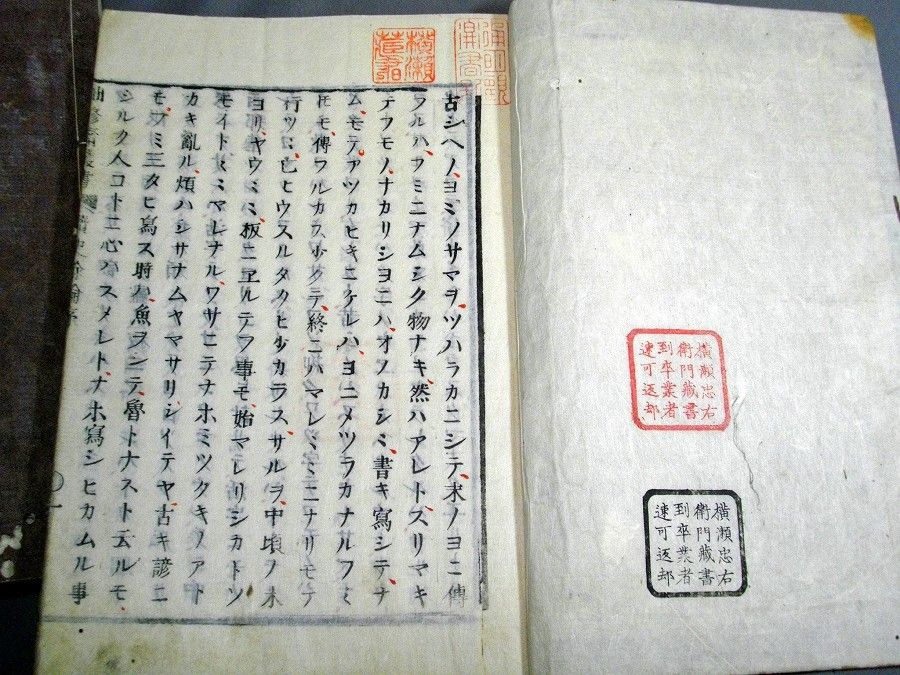 橫瀬忠右
衛門藏書
到卒業者
速可返却
橫瀬忠右
衛門藏書
到卒業者
速可返却
古シヘノ、ヨミノサマヲ、ツハラカニシテ、末ノヨニ傳
フルハ、フミニナムシク物ナキ、然ハアレト、スリマキ
テフモノ、ナカリシヨニハ、オノカシ〻、書キ寫シテ、ナ
ム、モテアツカヒキニケレハ、ヨニメツラカナルフミ
トモ、傳フルカス少クテ、終ニハマレ〻〻ニナリモテ
行ツ〻、亡ヒウスルタクヒ少カラスサルヲ、中頃ノ末
ヨリ、ヤウ〻〻、板ニヱルテフ事モ、始マレリシカトソ
モイト〻〻マレナル、ワサニテナホミツクキノアト
カキ亂ル、煩ハシサナムヤマサリシ、イテヤ古キ諺ニ
モ、フミ三タヒ寫ス時ハ、魚ヲシテ、魯トナスト云ルモ、
シルク人コトニ心ハスメレト、ナホ寫シヒカムル事